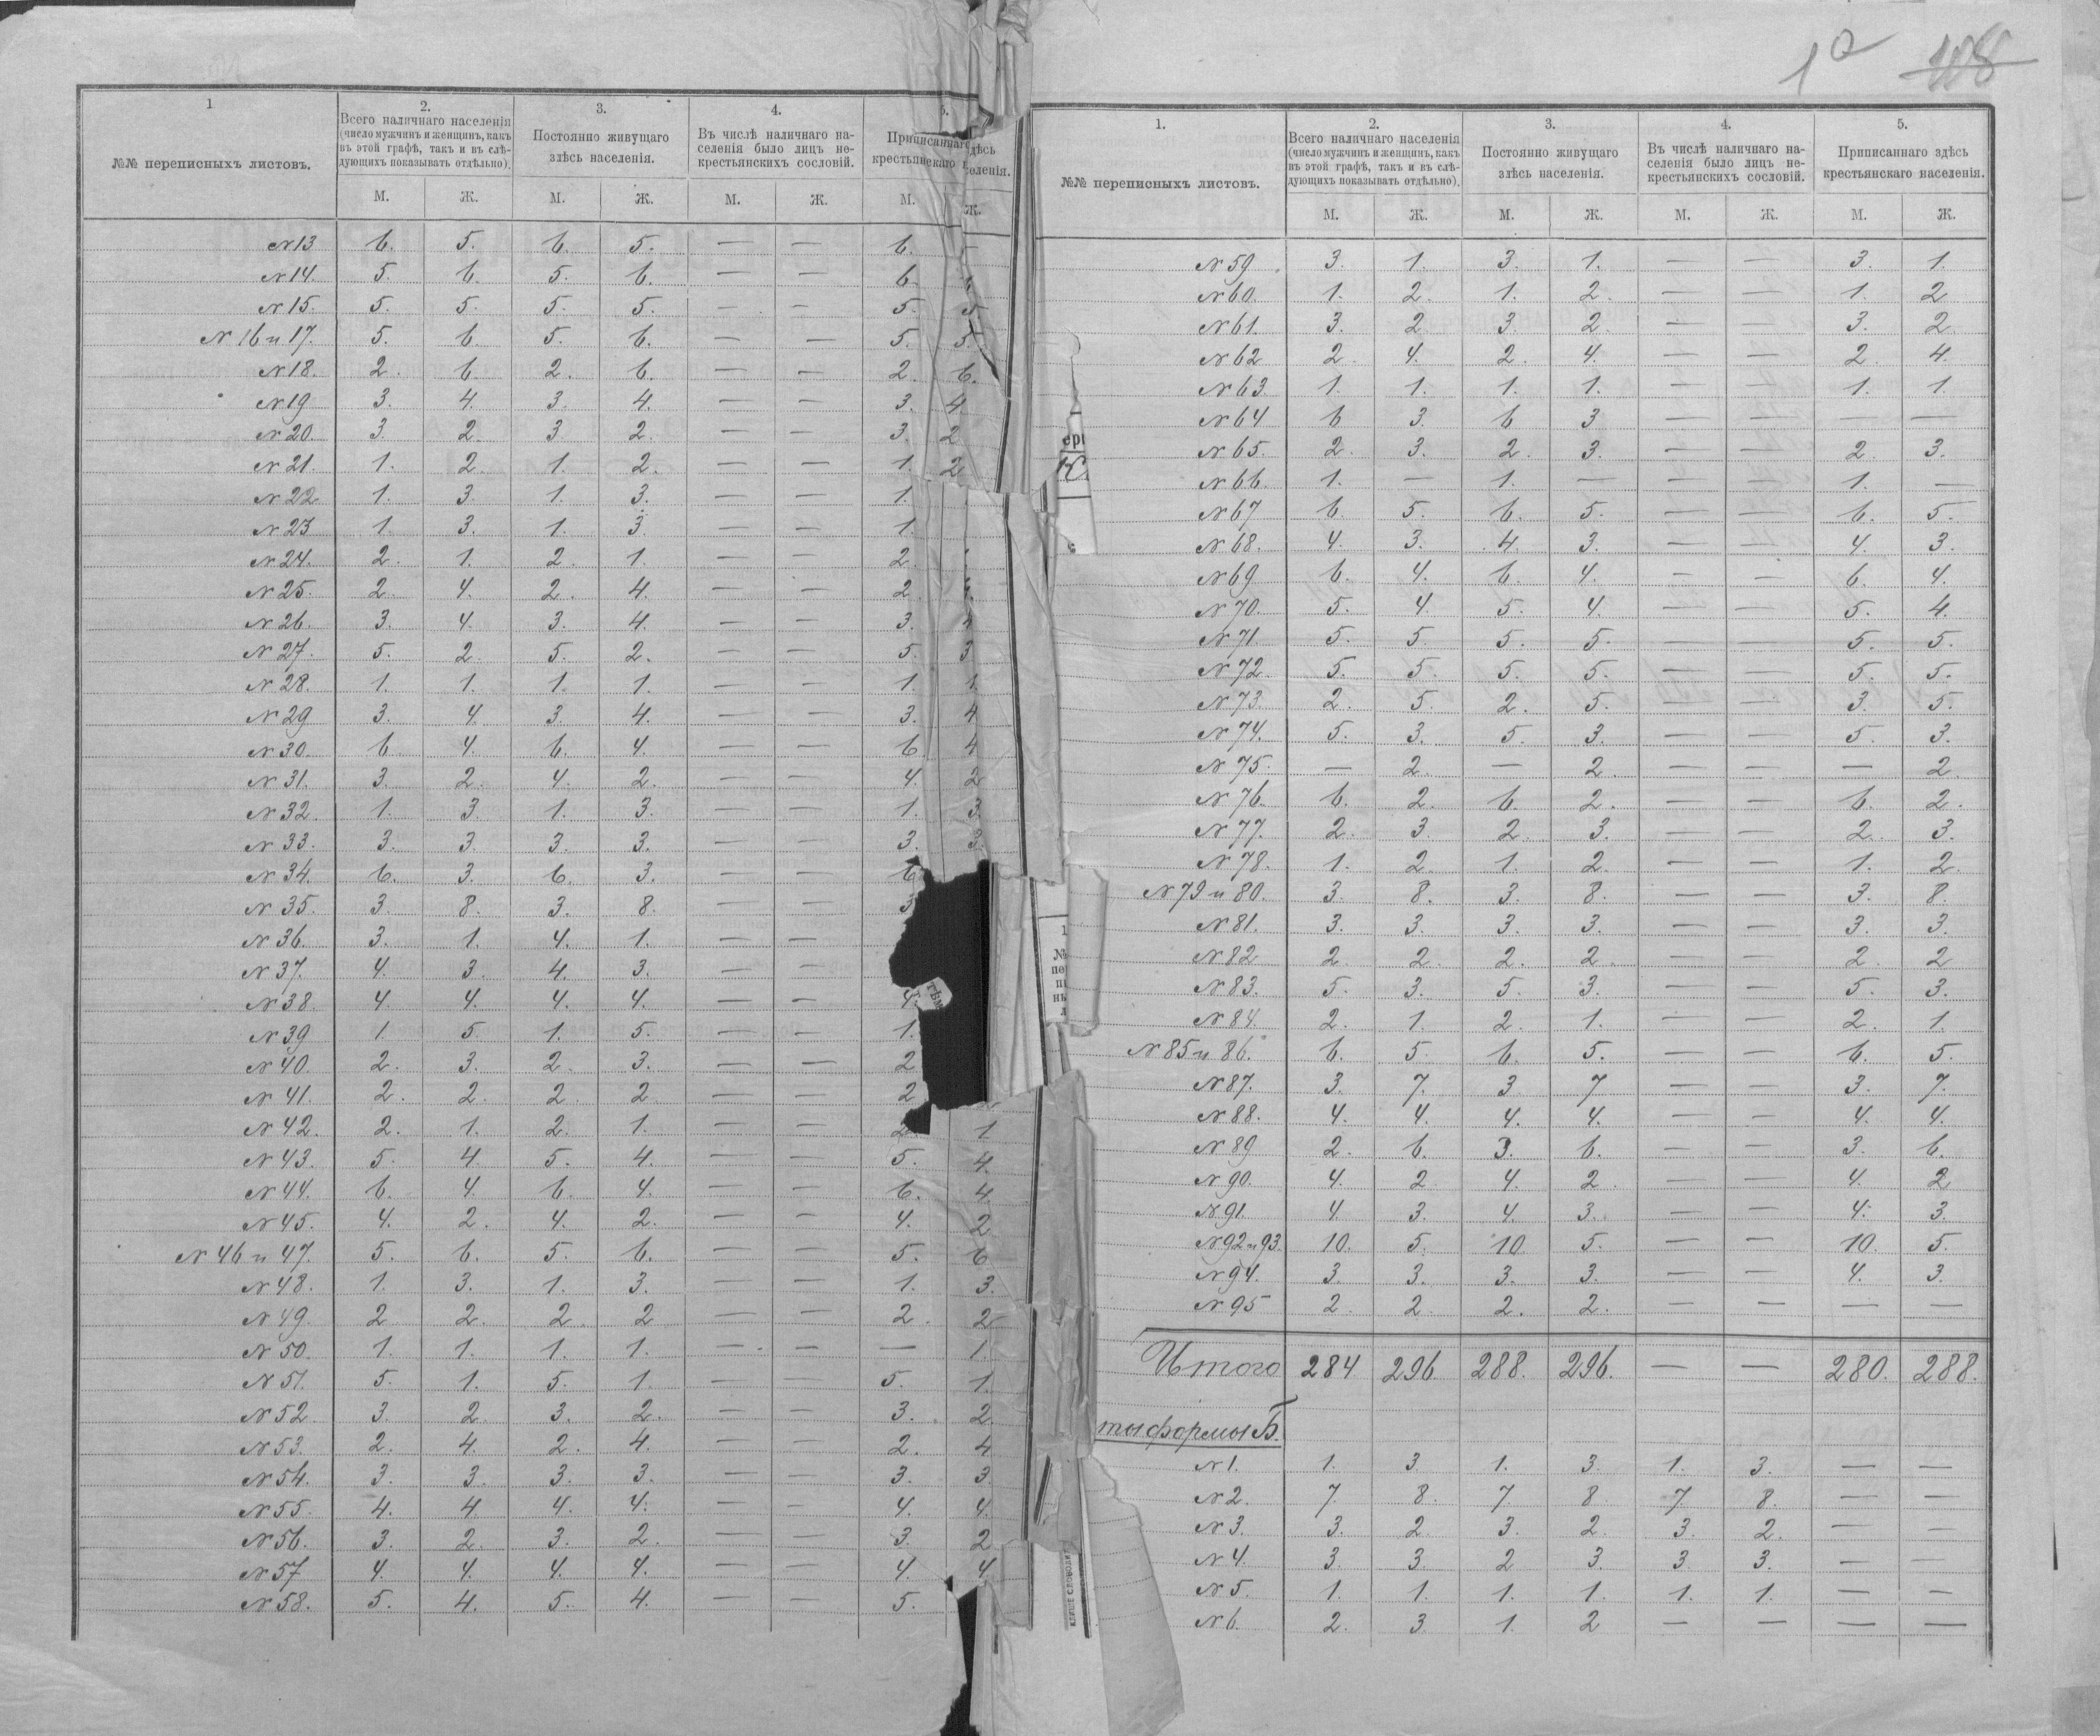 1а 108
1 2. 3. 4. 5.
№№ переписныхъ листовъ. Всего наличнаго населенія (число мужчинъ и женщинъ, какъ въ этой графѣ, такъ и въ слѣдующихъ показывать отдѣльно). Постоянно живущаго здѣсь населенія. Въ числѣ наличнаго населенія было лицъ некрестьянскихъ сословій. Приписаннаго здѣсь крестьянскаго населенія.
М. Ж. М. Ж. М. Ж. М. Ж.
№ 13 6. 5. 6. 5. — — 6.
№ 14. 5. 6. 5. 6. — — 6.
№ 15. 5. 5. 5. 5. — — 5. 5.
№ 16 и 17. 5. 6. 5. 6. — — 5. 5.
№ 18. 2. 6. 2. 6. — — 2. 6.
№ 19 3. 4. 3. 4. — — 3. 4
№ 20. 3. 2. 3. 2. — — 3. 2
№ 21. 1. 2. 1. 2. — — 1. 2
№ 22 1. 3. 1. 3. — — 1.
№ 23 1. 3. 1. 3. — — 1.
№ 24. 2. 1. 2. 1. — — 2.
№ 25. 2. 4. 2. 4. — — 2
№ 26. 3. 4. 3. 4. — — 3. 4
№ 27. 5. 2. 5. 2. — — 5. 3.
№ 28. 1. 1. 1. 1. — — 1. 1.
№ 29 3. 4. 3. 4. — — 3. 4
№ 30. 6. 4. 6. 4. — — 6. 4
№ 31. 3. 2. 4. 2. — — 4. 2
№ 32. 1. 3. 1. 3. — — 1. 3.
№ 33. 3. 3. 3. 3. — — 3. 3.
№ 34. 6. 3. 6. 3. — — 6
№ 35. 3. 8. 3. 8. — — 3
№ 36. 3. 1. 4. 1. — —
№ 37. 4. 3. 4. 3. — —
№ 38. 4. 4. 4. 4. — — 4.
№ 39 1. 5. 1. 5. — — 1.
№ 40. 2. 3. 2. 3. — — 2
№ 41. 2. 2. 2. 2. — — 2
№ 42. 2. 1. 2. 1. — — 2. 1
№ 43. 5. 4. 5. 4. — — 5. 4.
№ 44. 6. 4. 6. 4. — — 6. 4.
№ 45. 4. 2. 4. 2. — — 4. 2
№ 46 и 47. 5. 6. 5. 6. — — 5. 6
№ 48. 1. 3. 1. 3. — — 1. 3.
№ 49. 2 2. 2. 2 — — 2. 2
№ 50. 1. 1. 1. 1. — — — 1.
№ 51. 5. 1. 5. 1. — — 5. 1.
№ 52. 3. 2 3. 2. — — 3. 2.
№ 53. 2. 4. 2. 4. — — 2. 4
№ 54. 3. 3. 3. 3. — — 3. 3
№ 55. 4. 4. 4. 4. — — 4. 4.
№ 56. 3. 2. 3. 2. — — 3. 2
№ 57 4. 4. 4. 4. — — 4. 4
№ 58. 5. 4. 5. 4. — — 5.
1. 2. 3. 4. 5.
№№ переписныхъ листовъ. Всего наличнаго населенія (число мужчинъ и женщинъ, какъ въ этой графѣ, такъ и въ слѣдующихъ показывать отдѣльно). Постоянно живущаго здѣсь населенія. Въ числѣ наличнаго населенія было лицъ некрестьянскихъ сословій. Приписаннаго здѣсь крестьянскаго населенія.
М. Ж. М. Ж. М. Ж. М. Ж.
№ 59. 3. 1. 3. 1. — — 3. 1.
№ 60. 1. 2. 1. 2. — — 1. 2
№ 61. 3. 2 3. 2. — — 3. 2
№ 62 2. 4. 2. 4. — — 2. 4.
№ 63. 1. 1. 1. 1. — — 1. 1.
№ 64 6 3. 6 3 — — — —
№ 65. 2. 3. 2. 3. — — 2. 3.
№ 66 1. — 1. — — — 1. —
№ 67 6. 5. 6. 5. — — 6. 5.
№ 68. 4. 3. 4. 3. — — 4. 3.
№ 69 6. 4. 6. 4. — — 6. 4.
№ 70. 5. 4. 5. 4 — — 5. 4.
№ 71 5. 5 5. 5. — — 5. 5.
№ 72. 5. 5. 5. 5. — — 5. 5.
№ 73. 2. 5. 2. 5. — — 3. 5.
№ 74. 5. 3. 5. 3. — — 5. 3.
№ 75. — 2. — 2. — — — 2.
№ 76. 6. 2. 6. 2. — — 6. 2.
№ 77. 2. 3. 2. 3. — — 2. 3.
№ 78. 1. 2. 1. 2. — — 1. 2.
№ 79 и 80. 3. 8. 3. 8. — — 3. 8.
№ 81. 3. 3. 3. 3. — — 3. 3.
№ 82 2 2. 2. 2. — — 2. 2
№ 83. 5. 3. 5. 3. — — 5. 3.
№ 84. 2. 1. 2. 1. — — 2. 1.
№ 85 и 86. 6. 5. 6. 5. — — 6. 5.
№ 87. 3. 7. 3 7 — — 3. 7.
№ 88. 4. 4. 4. 4. — — 4. 4.
№ 89 2. 6. 3. 6. — — 3. 6.
№ 90. 4. 2. 4. 2. — — 4. 2
№ 91. 4. 3. 4. 3. — — 4. 3.
№ 92 и 93. 10. 5. 10 5. — — 10. 5.
№ 94. 3. 3. 3. 3. — — 4. 3.
№ 95 2. 2 2. 2. — — — —
Итого 284 296 288. 296. — — 280. 288.
ты формы Б.
№ 1. 1. 3. 1. 3. 1. 3. — —
№ 2. 7. 8. 7. 8 7. 8. — —
№ 3. 3. 2. 3. 2 3. 2. — —
№ 4. 3. 3. 2 3. 3. 3. — —
№ 5. 1. 1. 1. 1. 1. 1. — —
№ 6. 2. 3. 1. 2 — — — —